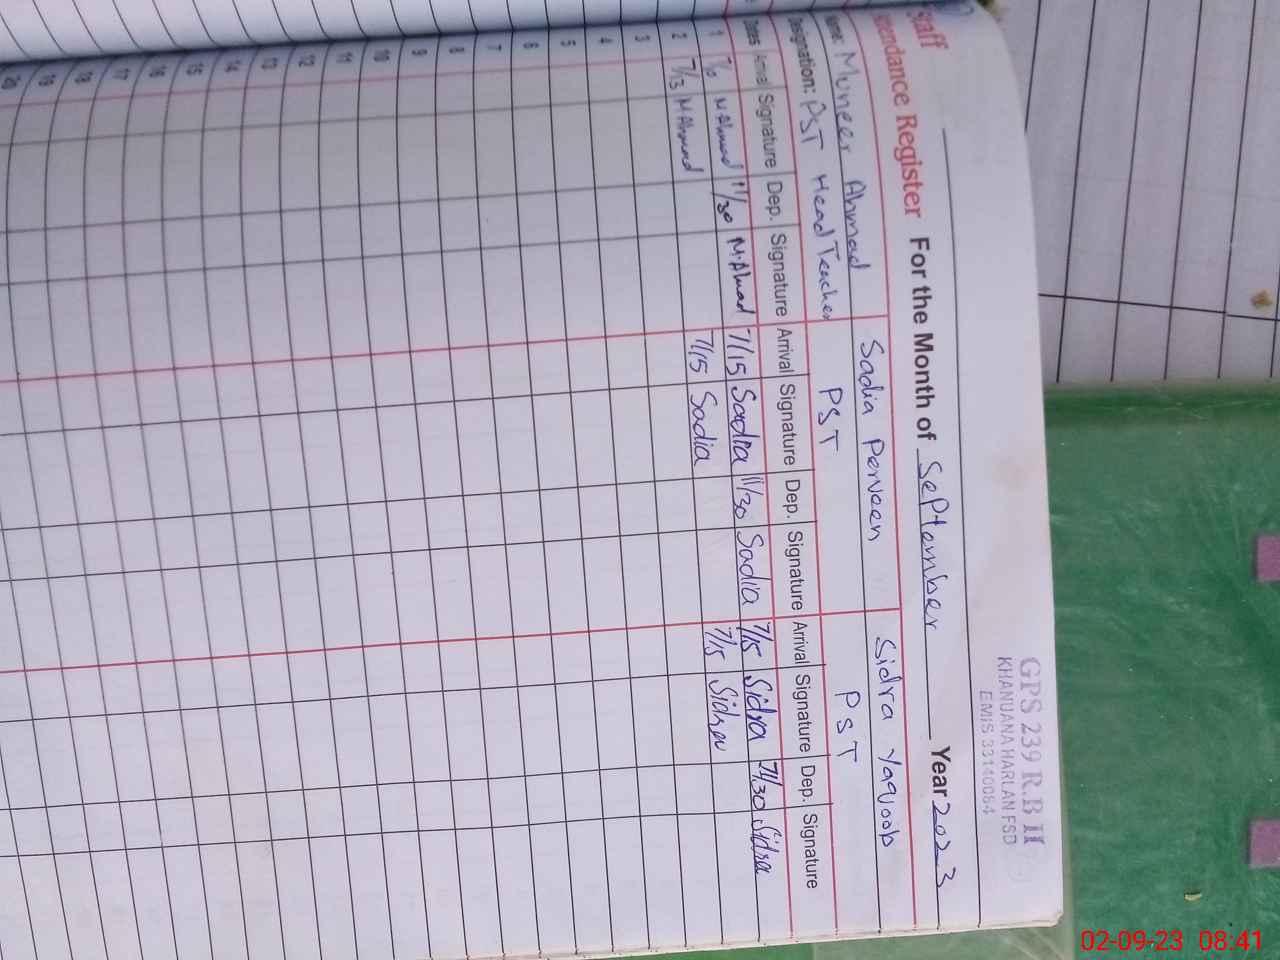 GPS 239 R.B II
KHANUANA HARLAN FSD
EMIS 33140084
Staff
Attendance Register For the Month of September Year 2023
Name: Muneer Ahmad Sadia Perveen Sidra Yaqoob
Designation: PST Head Teacher PST PST
Dates Arrival Signature Dep. Signature Arrival Signature Dep. Signature Arrival Signature Dep. Signature
1 M Ahmad 11/30 M.Ahmad 7/15 Sadia 11/30 Sadia 7/15 Sidra 11/30 Sidra
2 7/13 M Ahmad 7/15 Sadia 7/15 Sidra
3
4
5
6
7
8
9
10
11
12
13
14
15
16
17
18
19
20
02-09-23 08:41